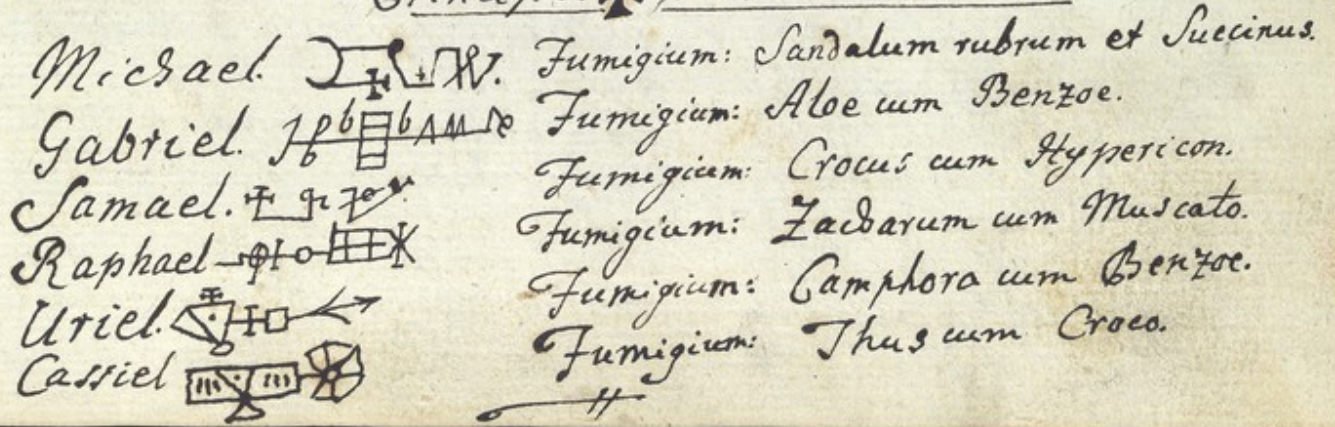 Michael. Fumigium: Sandalum rubrum et Succinus.
Gabriel. Fumigium: Aloe cum Benzoe.
Samael. Fumigium: Crocus cum Hypericon.
Raphael Fumigium: Zacharum cum Muscato.
Uriel. Fumigium: Camphora cum Benzoe.
Cassiel Fumigium: Thus cum Croco.